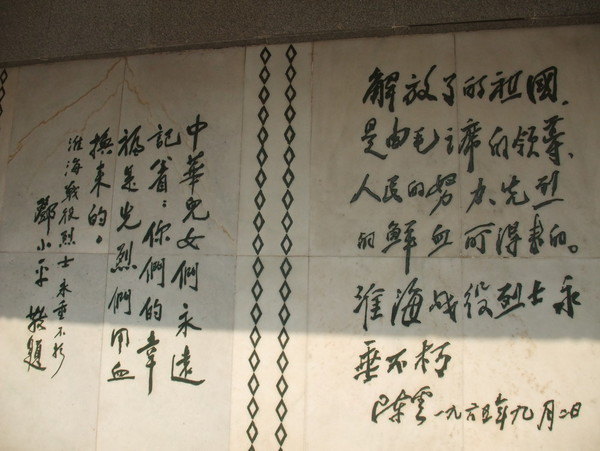 中華兒女們永遠
記着：你們的幸
福是先烈們用血
換來的。
淮海戰役烈士永垂不朽
鄧小平 敬題
解放了的祖國、
是由毛主席的领導、
人民的努力、先烈
的鲜血所得来的。
淮海战役烈士永
垂不朽
陈雲 一九六五年九月二日